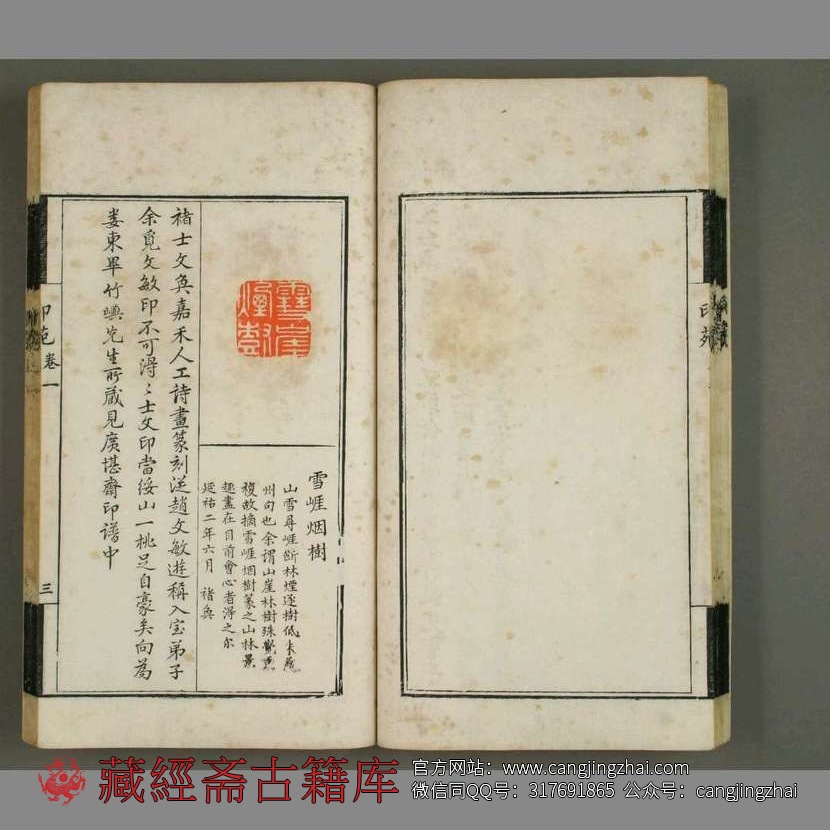 雪崕烟樹
山雪尋崕斷林煙逐樹低
州句也余謂山崖林樹殊覺重
複故摘雪崕烟樹篆之山林景
趣盡在目前會心者淂之尔
延祐二年六月 褚奐
褚士文奐嘉禾人工詩畫篆刻従趙文敏遊稱入室弟子
余覓文敏印不可淂〻士文印當綏山一桃足自豪矣向為
婁東畢竹嶼先生所藏見廣堪齋印譜中
印苑
卷一
三
印苑
藏經斋古籍库
官方网站：www.cangjingzhai.com
微信同QQ号：317691865 公众号：cangjingzhai